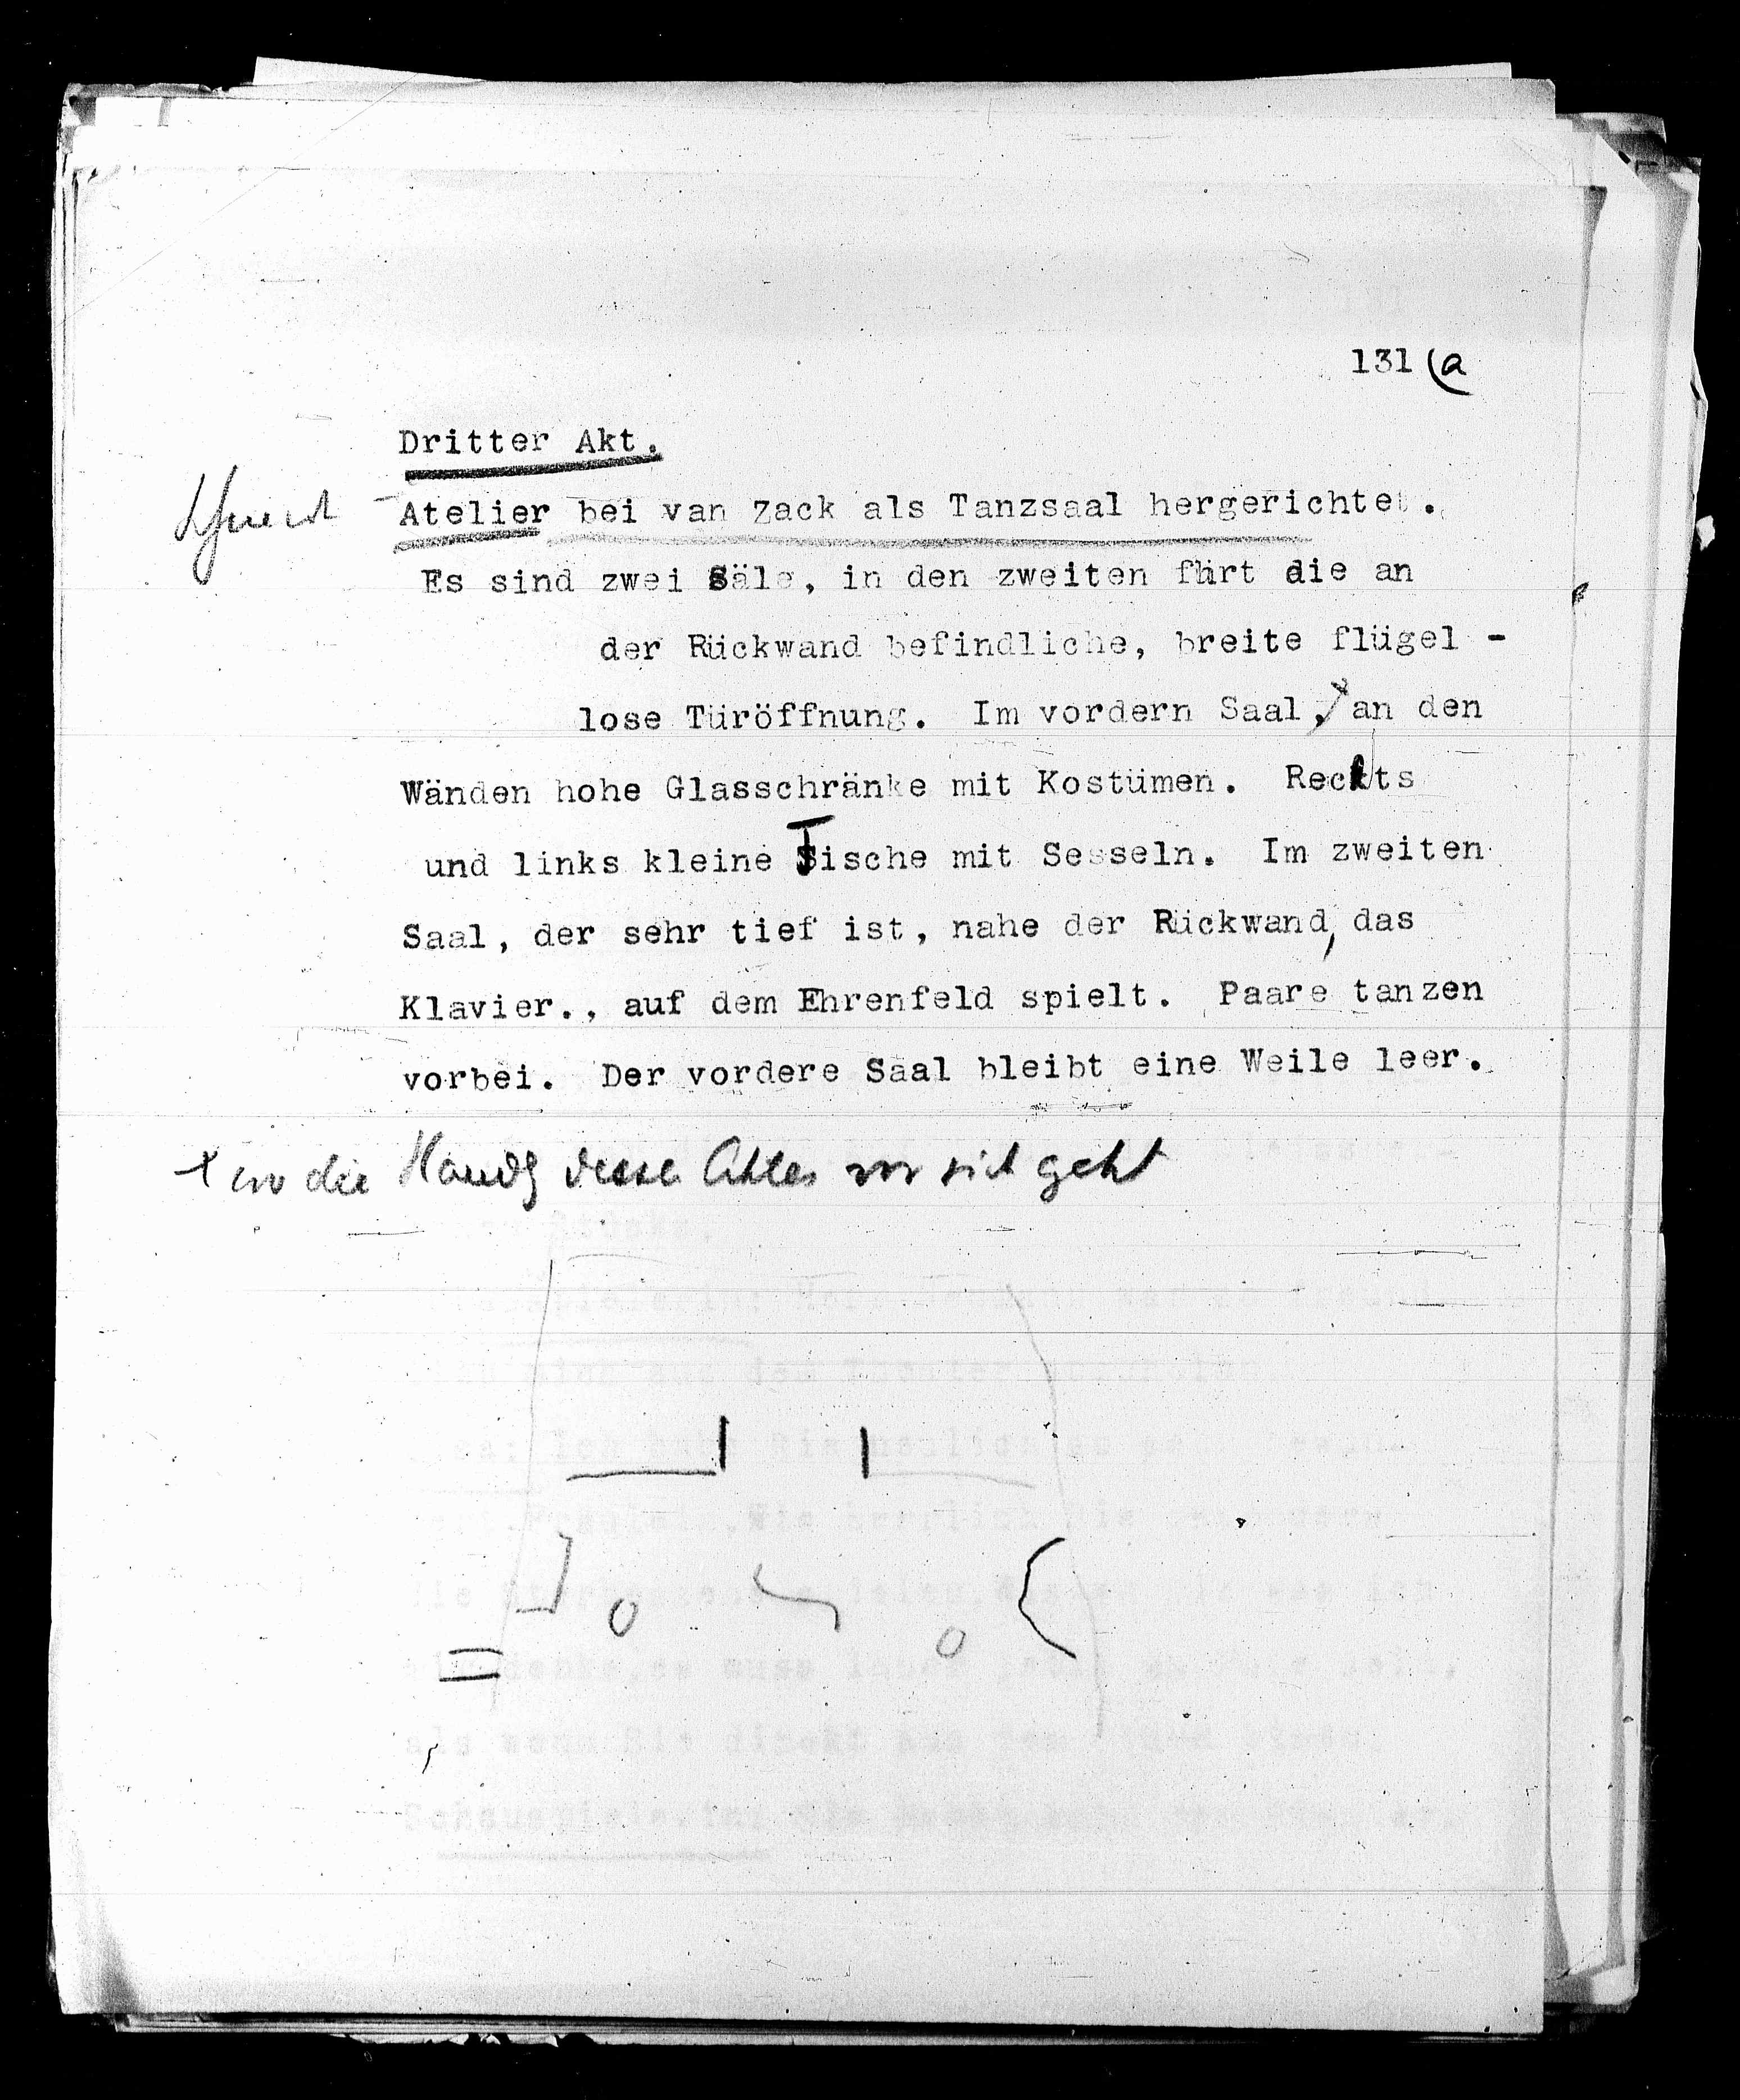 131 a
Dritter Akt.
Atelier bei van Zack als Tanzsaal hergerichtet.
Es sind zwei Säle, in den zweiten fürt die an
der Rückwand befindliche, breite flügel -
lose Türöffnung. Im vordern Saal, an den
Wänden hohe Glasschränke mit Kostümen. Rechts
und links kleine Tische mit Sesseln. Im zweiten
Saal, der sehr tief ist, nahe der Rückwand, das
Klavier., auf dem Ehrenfeld spielt. Paare tanzen
vorbei. Der vordere Saal bleibt eine Weile leer.
wo die Handlg dieses Aktes vor sich geht